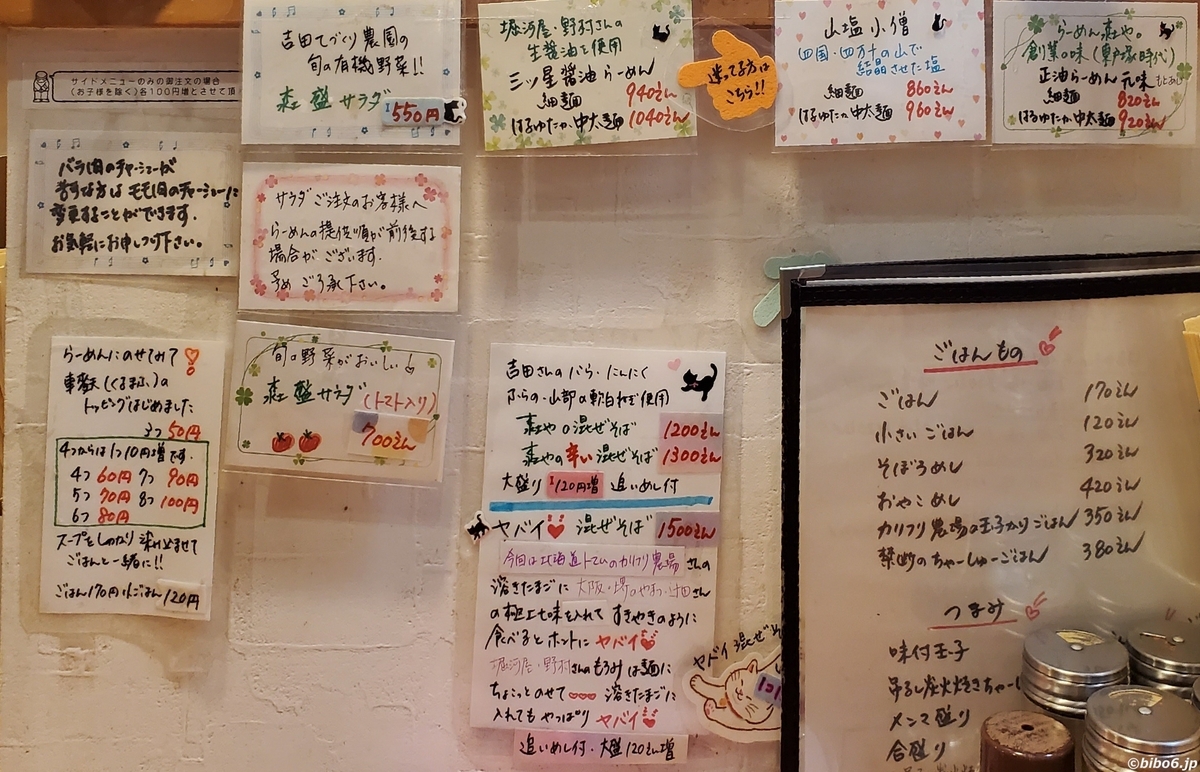 サイドメニューのみの御注文の場合
(お子様を除く)各100円増とさせて頂
バラ肉のチャーシューが
苦手な方はモモ肉のチャーシューに
変更することができます。
お気軽にお申しつけ下さい。
吉田てづくり農園の
旬の有機野菜!!
森盛サラダ
550円
サラダご注文のお客様へ
らーめんの提供順が前後する
場合がございます。
予めご了承下さい。
旬の野菜がおいしい
森盛サラダ(トマト入り)
700えん
らーめんにのせてみて
車麩(くるまふ)の
トッピングはじめました
3つ50円
4つからは1つ10円増です。
4つ60円 7つ90円
5つ70円 8つ100円
6つ80円
スープをしっかり染み込ませて
ごはんと一緒に!!
ごはん170円 小ごはん120円
堀河屋・野村さんの
生醤油を使用
三ツ星醤油らーめん
細麺 940えん
はるゆたか中太麺 1040えん
迷ってる方は
こちら!!
山塩小僧
四国・四万十の山で
結晶させた塩
細麺 860えん
はるゆたか中太麺 960えん
らーめん森や。
創業の味(東戸塚時代)
正油らーめん元味
細麺 820えん
はるゆたか中太麺 920えん
吉田さんのバラ・にんにく
ふらの・山部の軟白ねぎ使用
森やの混ぜそば 1200えん
森やの辛い混ぜそば 1300えん
大盛り 120円増 追いめし付
ヤバイ 混ぜそば 1500えん
今回は北海道トマムのカリフリ農場さんの
溶きたまごに 大阪・堺のやまつ辻田さん
の極上七味を入れて すきやきのように
食べるとホントに ヤバイ
堀河屋・野村さんのもろみは麺に
ちょこっとのせて 溶きたまごに
入れてもやっぱり ヤバイ
追いめし付・大盛120えん増
ヤバイ混ぜそ
ごはんもの
ごはん 170えん
小さいごはん 120えん
そぼろめし 320えん
おやこめし 420えん
カリフリ農場の玉子かけごはん 350えん
禁断のちゃーしゅーごはん 380えん
つまみ
味付玉子
吊るし炭火焼きちゃーし
メンマ盛り
合盛り
©bibo6.jp